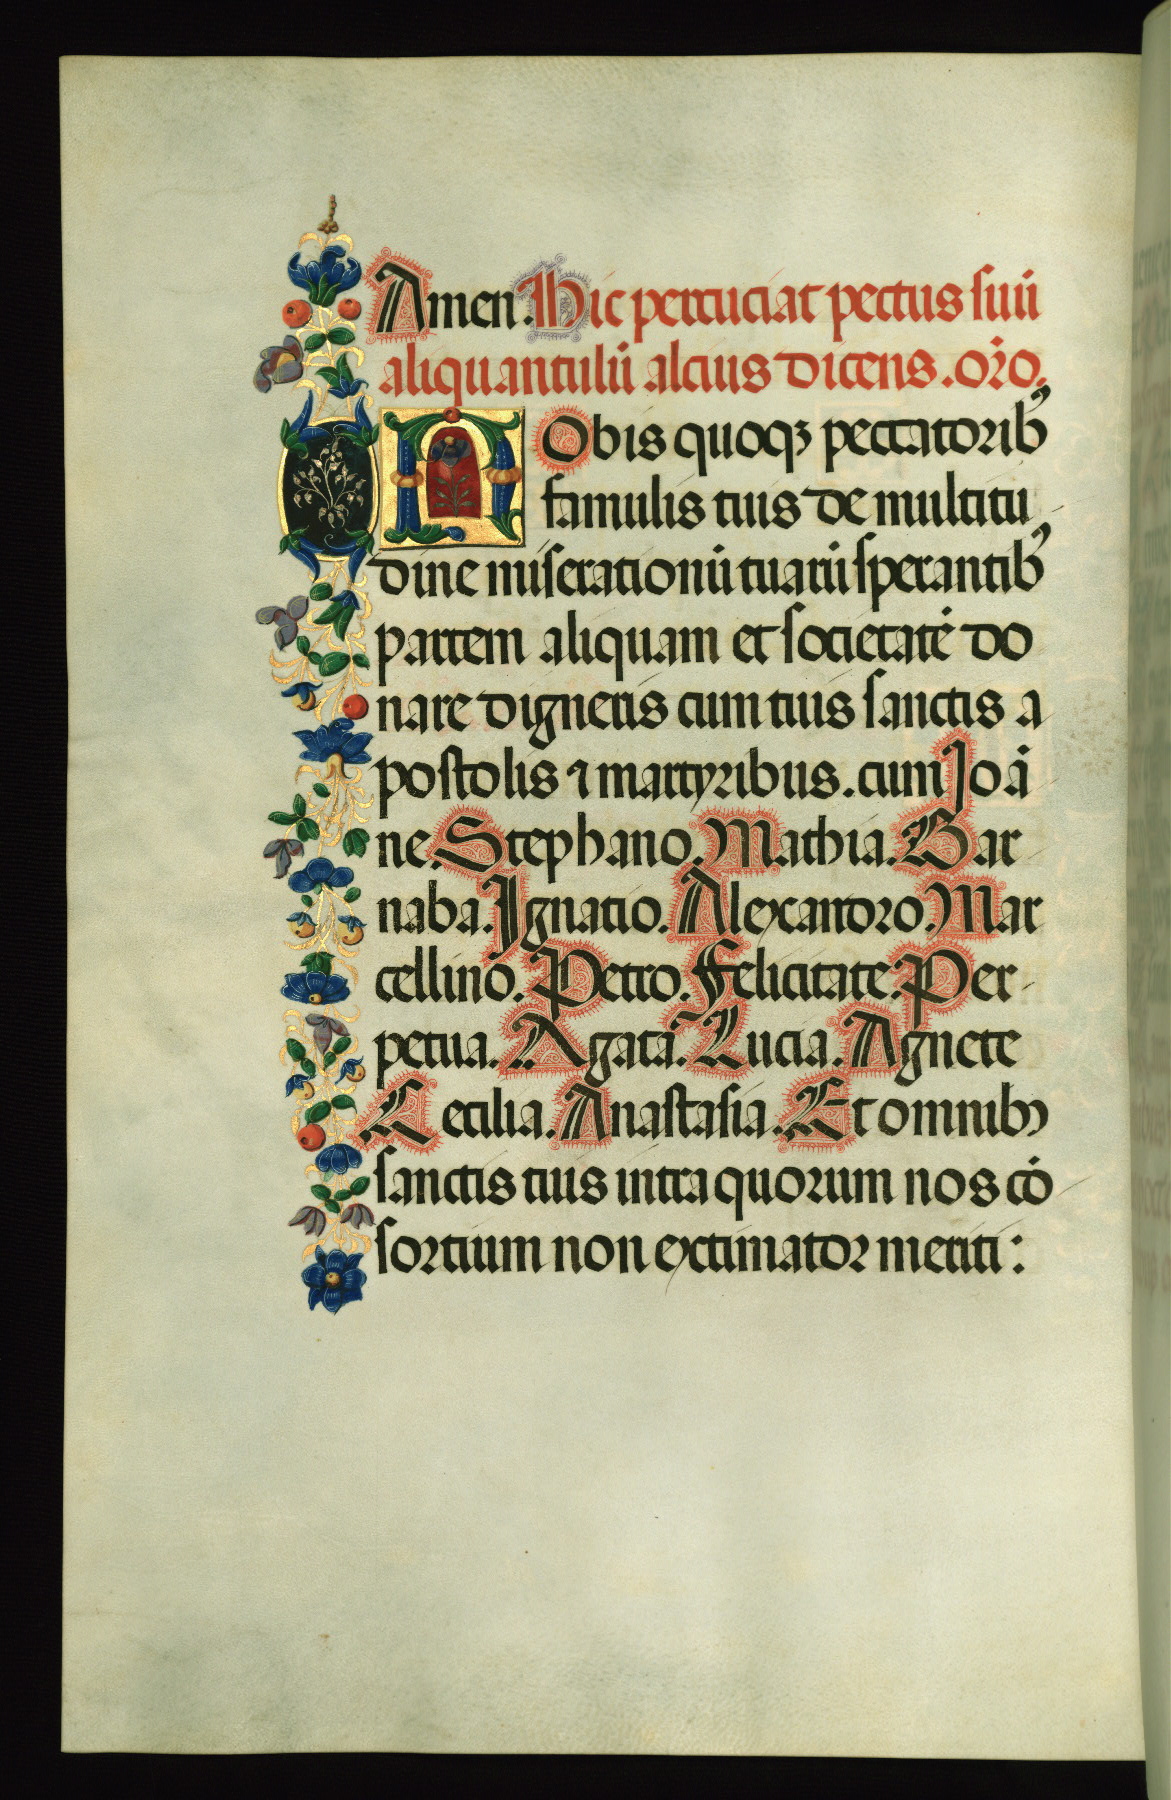 Amen. Hic percuciat pectus suū
aliquantulū alcius dicens. or̄o.
Nobis quoqꝫ peccatorib⁹
famulis tuis de multitu
dine miserationū tuarū sperantib⁹
partem aliquam et societatē do
nare digneris cum tuis sanctis a
postolis ⁊ martyribus. cum Joā
ne. Stephano. Mathia. Bar
naba. Ignatio. Alexandro. Mar
cellino. Petro. Felicitate. Per
petua. Agata. Lucia. Agnete
Cecilia. Anastasia. Et omnibꝫ
sanctis tuis intra quorum nos cō
sortium non extimator meriti: